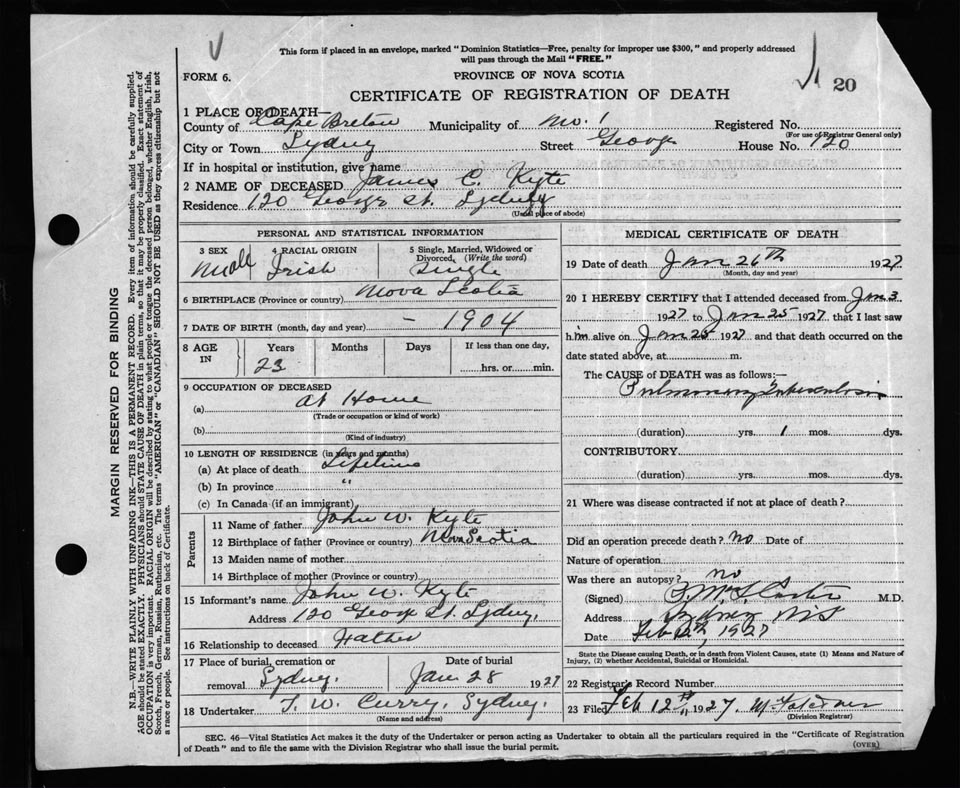 This form if placed in an envelope, marked "Dominion Statistics—Free, penalty for improper use $300," and properly addressed
will pass through the Mail "FREE."
FORM 6.
PROVINCE OF NOVA SCOTIA
20
CERTIFICATE OF REGISTRATION OF DEATH
1 PLACE OF DEATH—
County of Cape Breton Municipality of No. 1 Registered No.
(For use of Registrar General only)
City or Town Sydney Street George House No. 120
If in hospital or institution, give name
2 NAME OF DECEASED James C. Kyte
Residence 120 George St. Sydney
(Usual place of abode)
PERSONAL AND STATISTICAL INFORMATION
3 SEX Male
4 RACIAL ORIGIN Irish
5 Single, Married, Widowed or Divorced. (Write the word) Single
6 BIRTHPLACE (Province or country) Nova Scotia
7 DATE OF BIRTH (month, day and year) – 1904
8 AGE IN Years 23 Months Days If less than one day, hrs. or min.
9 OCCUPATION OF DECEASED
(a) at Home
(Trade or occupation or kind of work)
(b)
(Kind of industry)
10 LENGTH OF RESIDENCE (in years and months)
(a) At place of death Lifetime
(b) In province "
(c) In Canada (if an immigrant)
Parents
11 Name of father John W. Kyte
12 Birthplace of father (Province or country) Nova Scotia
13 Maiden name of mother
14 Birthplace of mother (Province or country)
15 Informant's name John W. Kyte
Address 120 George St. Sydney.
16 Relationship to deceased Father
17 Place of burial, cremation or removal Sydney.
Date of burial Jan 28 1927
18 Undertaker T. W. Curry, Sydney.
(Name and address)
MEDICAL CERTIFICATE OF DEATH
19 Date of death Jan 26th 1927
(Month, day and year)
20 I HEREBY CERTIFY that I attended deceased from Jan 3
1927 to Jan 25 1927 that I last saw
him alive on Jan 25 1927 and that death occurred on the
date stated above, at m.
The CAUSE of DEATH was as follows:—
Pulmonary Tuberculosis
(duration) yrs. 1 mos. dys.
CONTRIBUTORY
(duration) yrs. mos. dys.
21 Where was disease contracted if not at place of death?
Did an operation precede death? no Date of
Nature of operation
Was there an autopsy? no
(Signed) M.D.
Address Sydney N.S.
Date Feb 12th 1927
State the Disease causing Death, or in death from Violent Causes, state (1) Means and Nature of
Injury, (2) whether Accidental, Suicidal or Homicidal.
22 Registrar's Record Number
23 Filed Feb 12th 1927.
(Division Registrar)
SEC. 46—Vital Statistics Act makes it the duty of the Undertaker or person acting as Undertaker to obtain all the particulars required in the "Certificate of Registration
of Death" and to file the same with the Division Registrar who shall issue the burial permit.
(OVER)
MARGIN RESERVED FOR BINDING
N.B.—WRITE PLAINLY WITH UNFADING INK—THIS IS A PERMANENT RECORD. Every item of information should be carefully supplied.
AGE should be stated EXACTLY. PHYSICIANS should STATE CAUSE OF DEATH in plain terms, so that it may be properly classified. Exact statement of
OCCUPATION is very important. RACIAL ORIGIN will be described by stating to what people or tongue the deceased person belonged, whether English, Irish,
Scotch, French, German, Russian, Ruthenian, etc. The terms "AMERICAN" or "CANADIAN" SHOULD NOT BE USED as they express citizenship but not
a race or people. See instructions on back of Certificate.